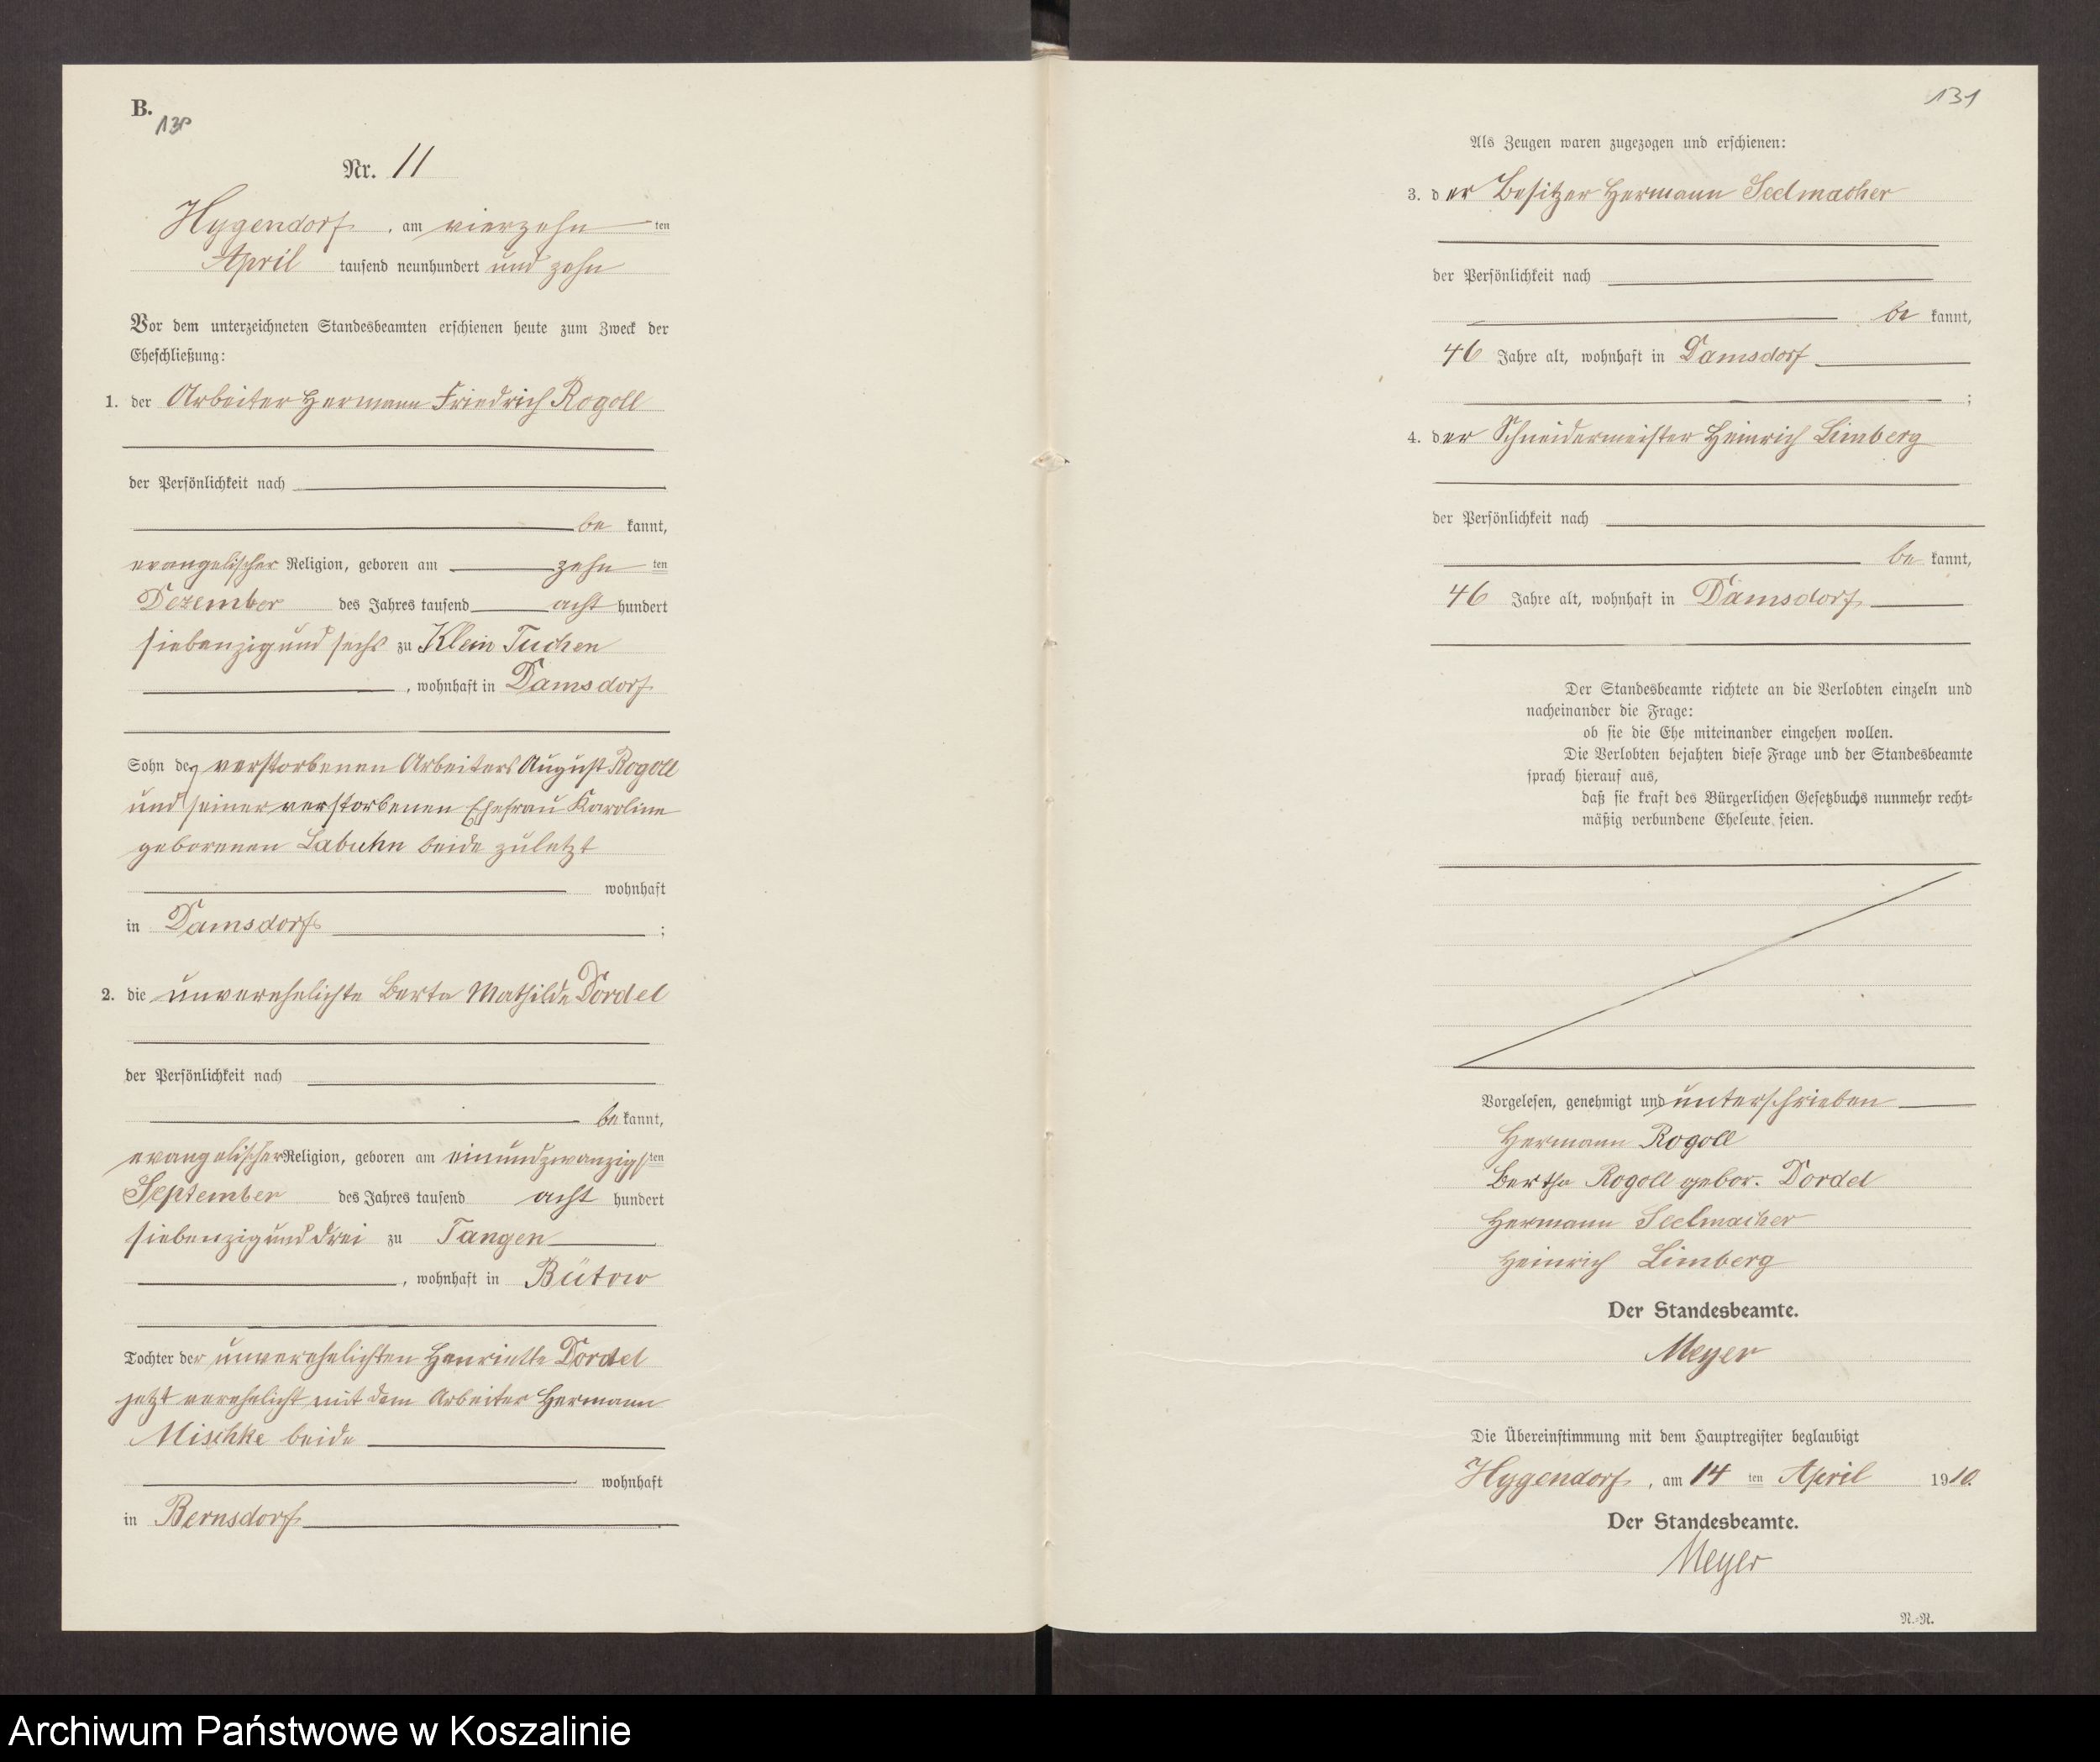 B.
130
Nr. 11
Hygendorf, am vierzehn ten
April tausend neunhundert und zehn
Vor dem unterzeichneten Standesbeamten erschienen heute zum Zweck der
Eheschließung:
1. der Arbeiter Hermann Friedrich Rogoll
der Persönlichkeit nach
be kannt,
evangelischer Religion, geboren am zehn ten
Dezember des Jahres tausend acht hundert
siebenzig und sechs zu Klein Tuchen
, wohnhaft in Damsdorf
Sohn des verstorbenen Arbeiters August Rogoll
und seiner verstorbenen Ehefrau Karoline
geborenen Labuhn beide zuletzt
wohnhaft
in Damsdorf ;
2. die unverehelichte Berta Mathilde Dordel
der Persönlichkeit nach
be kannt,
evangelischer Religion, geboren am einundzwanzigsten
September des Jahres tausend acht hundert
siebenzig und drei zu Tangen
, wohnhaft in Bütow
Tochter der unverehelichten Henriette Dordel
jetzt verehelicht mit dem Arbeiter Hermann
Mischke beide
wohnhaft
in Bernsdorf
131
Als Zeugen waren zugezogen und erschienen:
3. der Besitzer Hermann Seelmacher
der Persönlichkeit nach
be kannt,
46 Jahre alt, wohnhaft in Damsdorf
;
4. der Schneidermeister Heinrich Limberg
der Persönlichkeit nach
be kannt,
46 Jahre alt, wohnhaft in Damsdorf
Der Standesbeamte richtete an die Verlobten einzeln und
nacheinander die Frage:
ob sie die Ehe miteinander eingehen wollen.
Die Verlobten bejahten diese Frage und der Standesbeamte
sprach hierauf aus,
daß sie kraft des Bürgerlichen Gesetzbuchs nunmehr recht-
mäßig verbundene Eheleute seien.
Vorgelesen, genehmigt und unterschrieben
Hermann Rogoll
Bertha Rogoll gebor. Dordel
Hermann Seelmacher
Heinrich Limberg
Der Standesbeamte.
Meyer
Die Übereinstimmung mit dem Hauptregister beglaubigt
Hygendorf, am 14 ten April 1910.
Der Standesbeamte.
Meyer
R.-R.
Archiwum Państwowe w Koszalinie